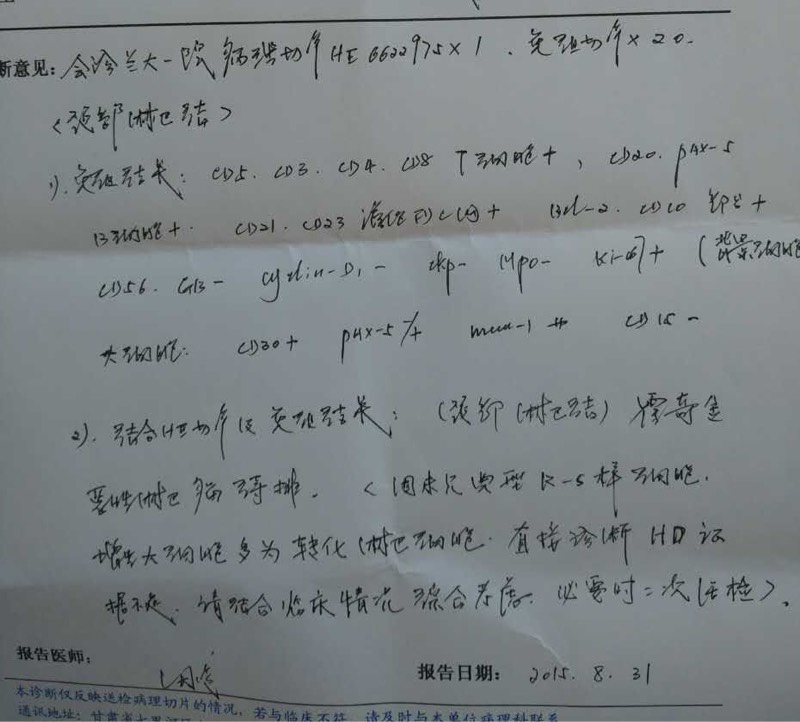 新意见：会诊兰大一院病理切片HE 6622975×1、免组切片×20.
<颈部淋巴结>
1). 免组结果：CD5. CD3. CD4. CD8 T细胞+，CD20. PAX-5
B细胞+. CD21. CD23 滤泡 + Bcl-2. CD10 部分+
CD56. GB- cyclin-D1- ckp- Mpo- Ki-67+ (背景细胞
大细胞: CD30+ PAX-5 /+ mum-1 + CD15 -
2). 结合HE切片及免组结果：(颈部淋巴结) 霍奇金
恶性淋巴瘤待排. <因未见典型R-S样细胞.
增生大细胞多为转化淋巴细胞. 直接诊断HD证
据不足. 请结合临床情况综合考虑. 必要时二次活检>.
报告医师：
报告日期： 2015. 8. 31
本诊断仅反映送检病理切片的情况，若与临床不符，请及时与本单位病理科联系
通讯地址：甘肃省